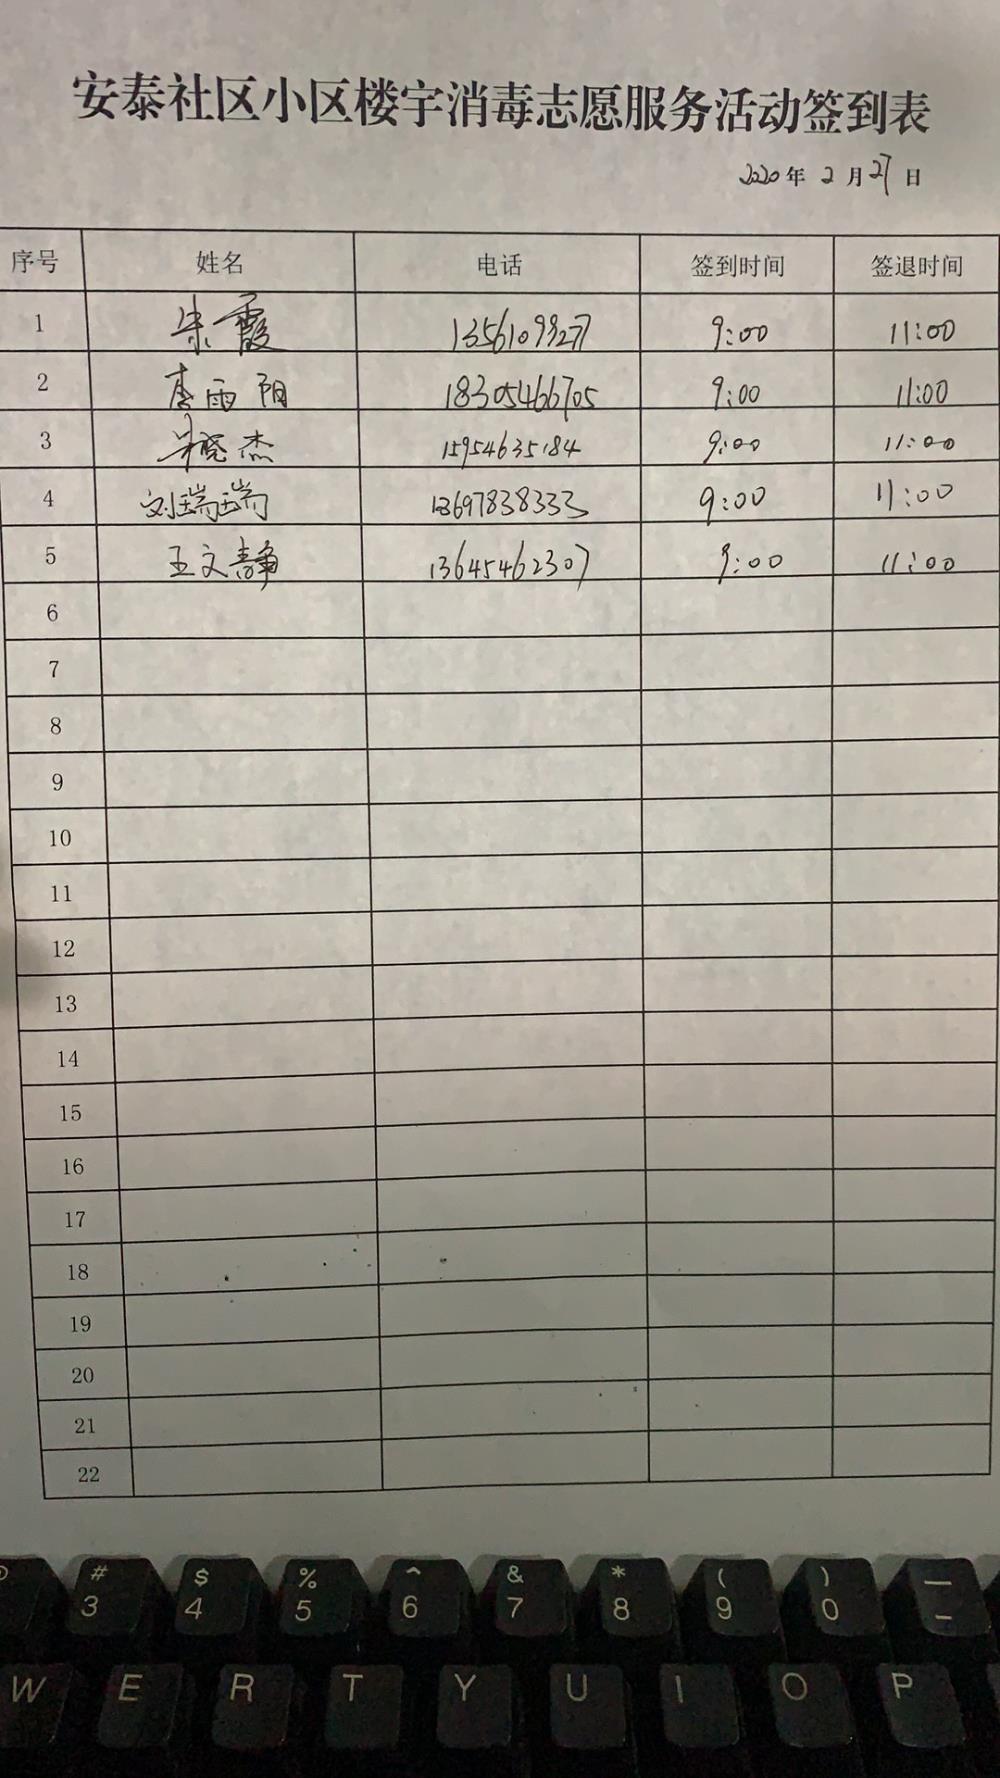 安泰社区小区楼宇消毒志愿服务活动签到表
2020年 2 月 27 日
序号 姓名 电话 签到时间 签退时间
1 朱霞 9:00 11:00
2 李雨阳 18305466705 9:00 11:00
3 晓杰 15954635184 9:00 11:00
4 刘瑞瑞 13697838333 9:00 11:00
5 王文静 13645462307 9:00 11:00
6
7
8
9
10
11
12
13
14
15
16
17
18
19
20
21
22
# $ % ^ & * ( ) —
3 4 5 6 7 8 9 0 -
W E R T Y U I O P